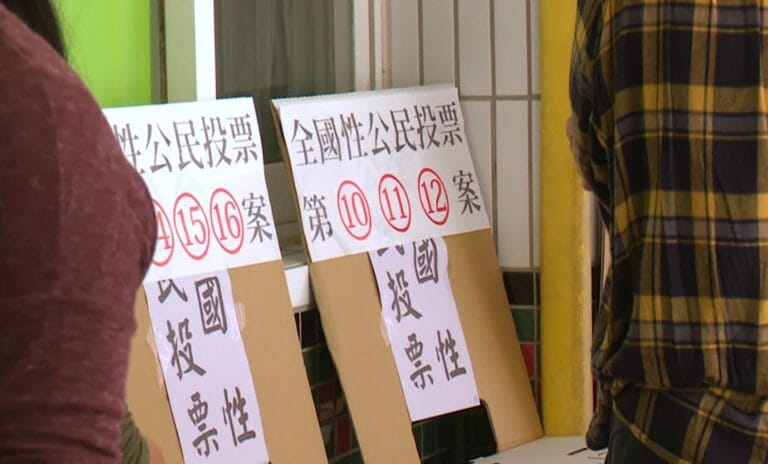 性公民投票
⑮⑯案
國
投
票性
全國性公民投票
第⑩⑪⑫案
國
投
票性